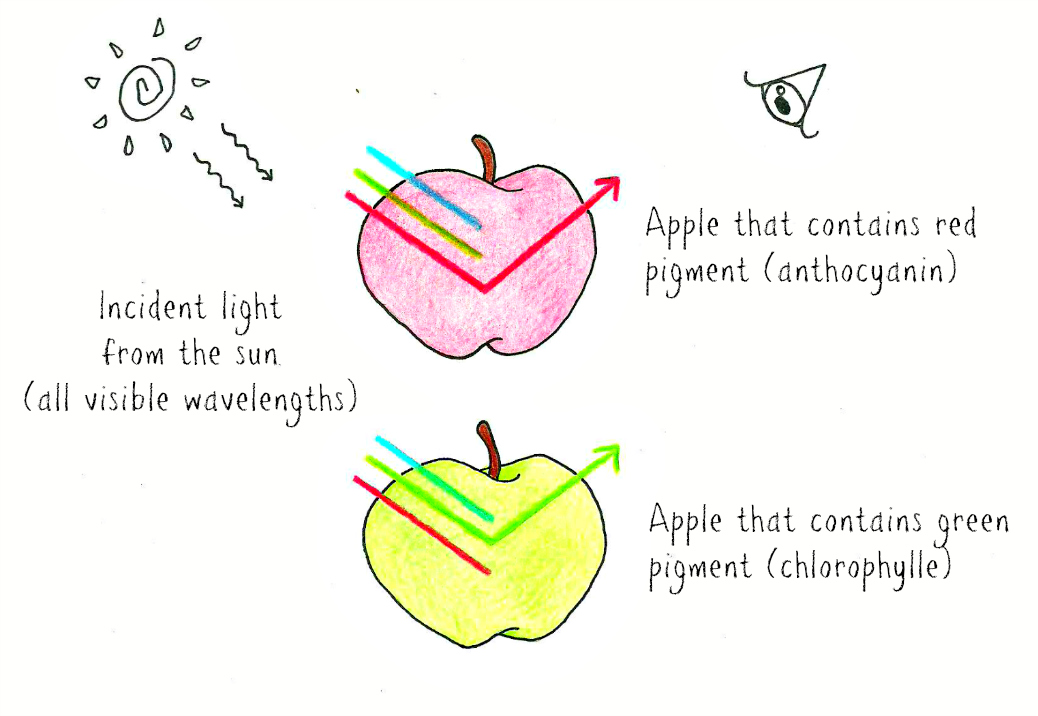 Apple that contains red
pigment (anthocyanin)
Incident light
from the sun
(all visible wavelengths)
Apple that contains green
pigment (chlorophylle)